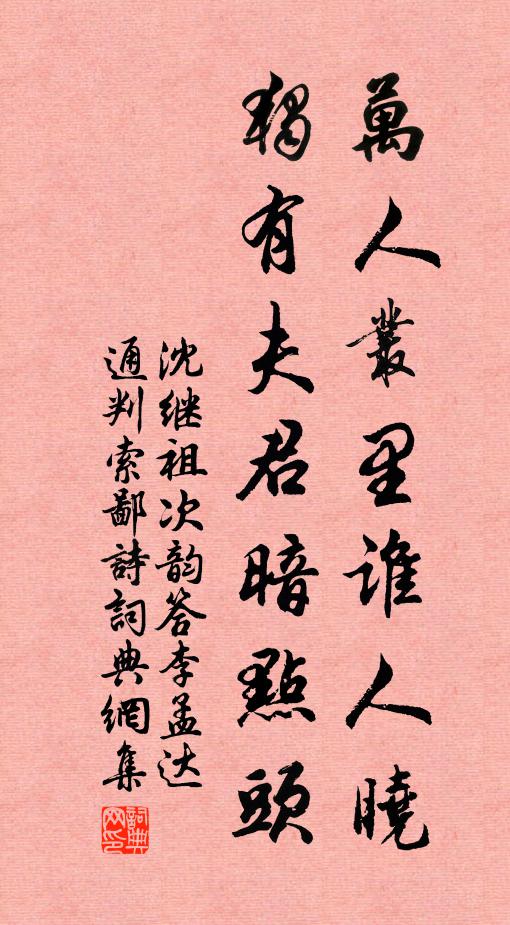 萬人叢里誰人曉
獨有夫君暗點頭
沈继祖次韵答李孟达
通判索鄙詩詞典網集
詞典网印